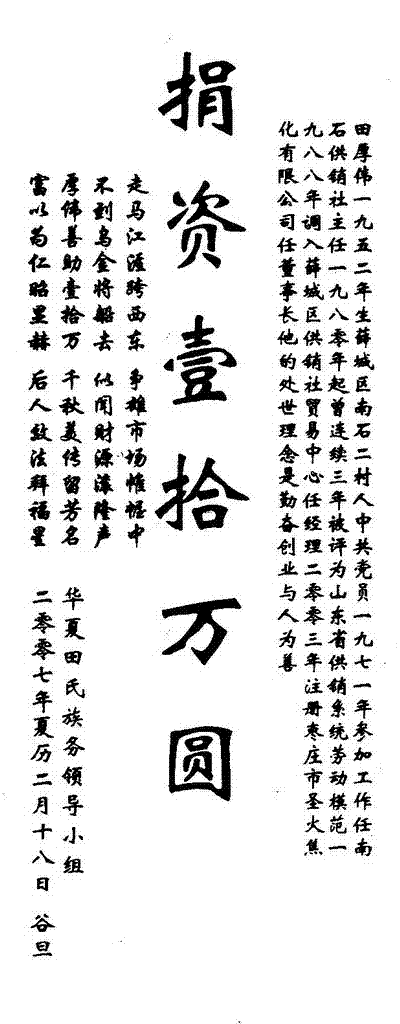 田厚伟一九五二年生薛城区南石二村人中共党员一九七一年参加工作任南
石供销社主任一九八零年起曾连续三年被评为山东省供销系统劳动模范一
九八八年调入薛城区供销社贸易中心任经理二零零三年注册枣庄市圣火焦
化有限公司任董事长他的处世理念是勤奋创业与人为善
捐资壹拾万圆
走马江涯跨西东 争雄市场帷幄中
不到乌金将船去 似闻财源滚隆声
厚伟善助壹拾万 千秋美传留芳名
富以为仁昭显赫 后人效法拜福星
华夏田氏族务领导小组
二零零七年夏历二月十八日 谷旦